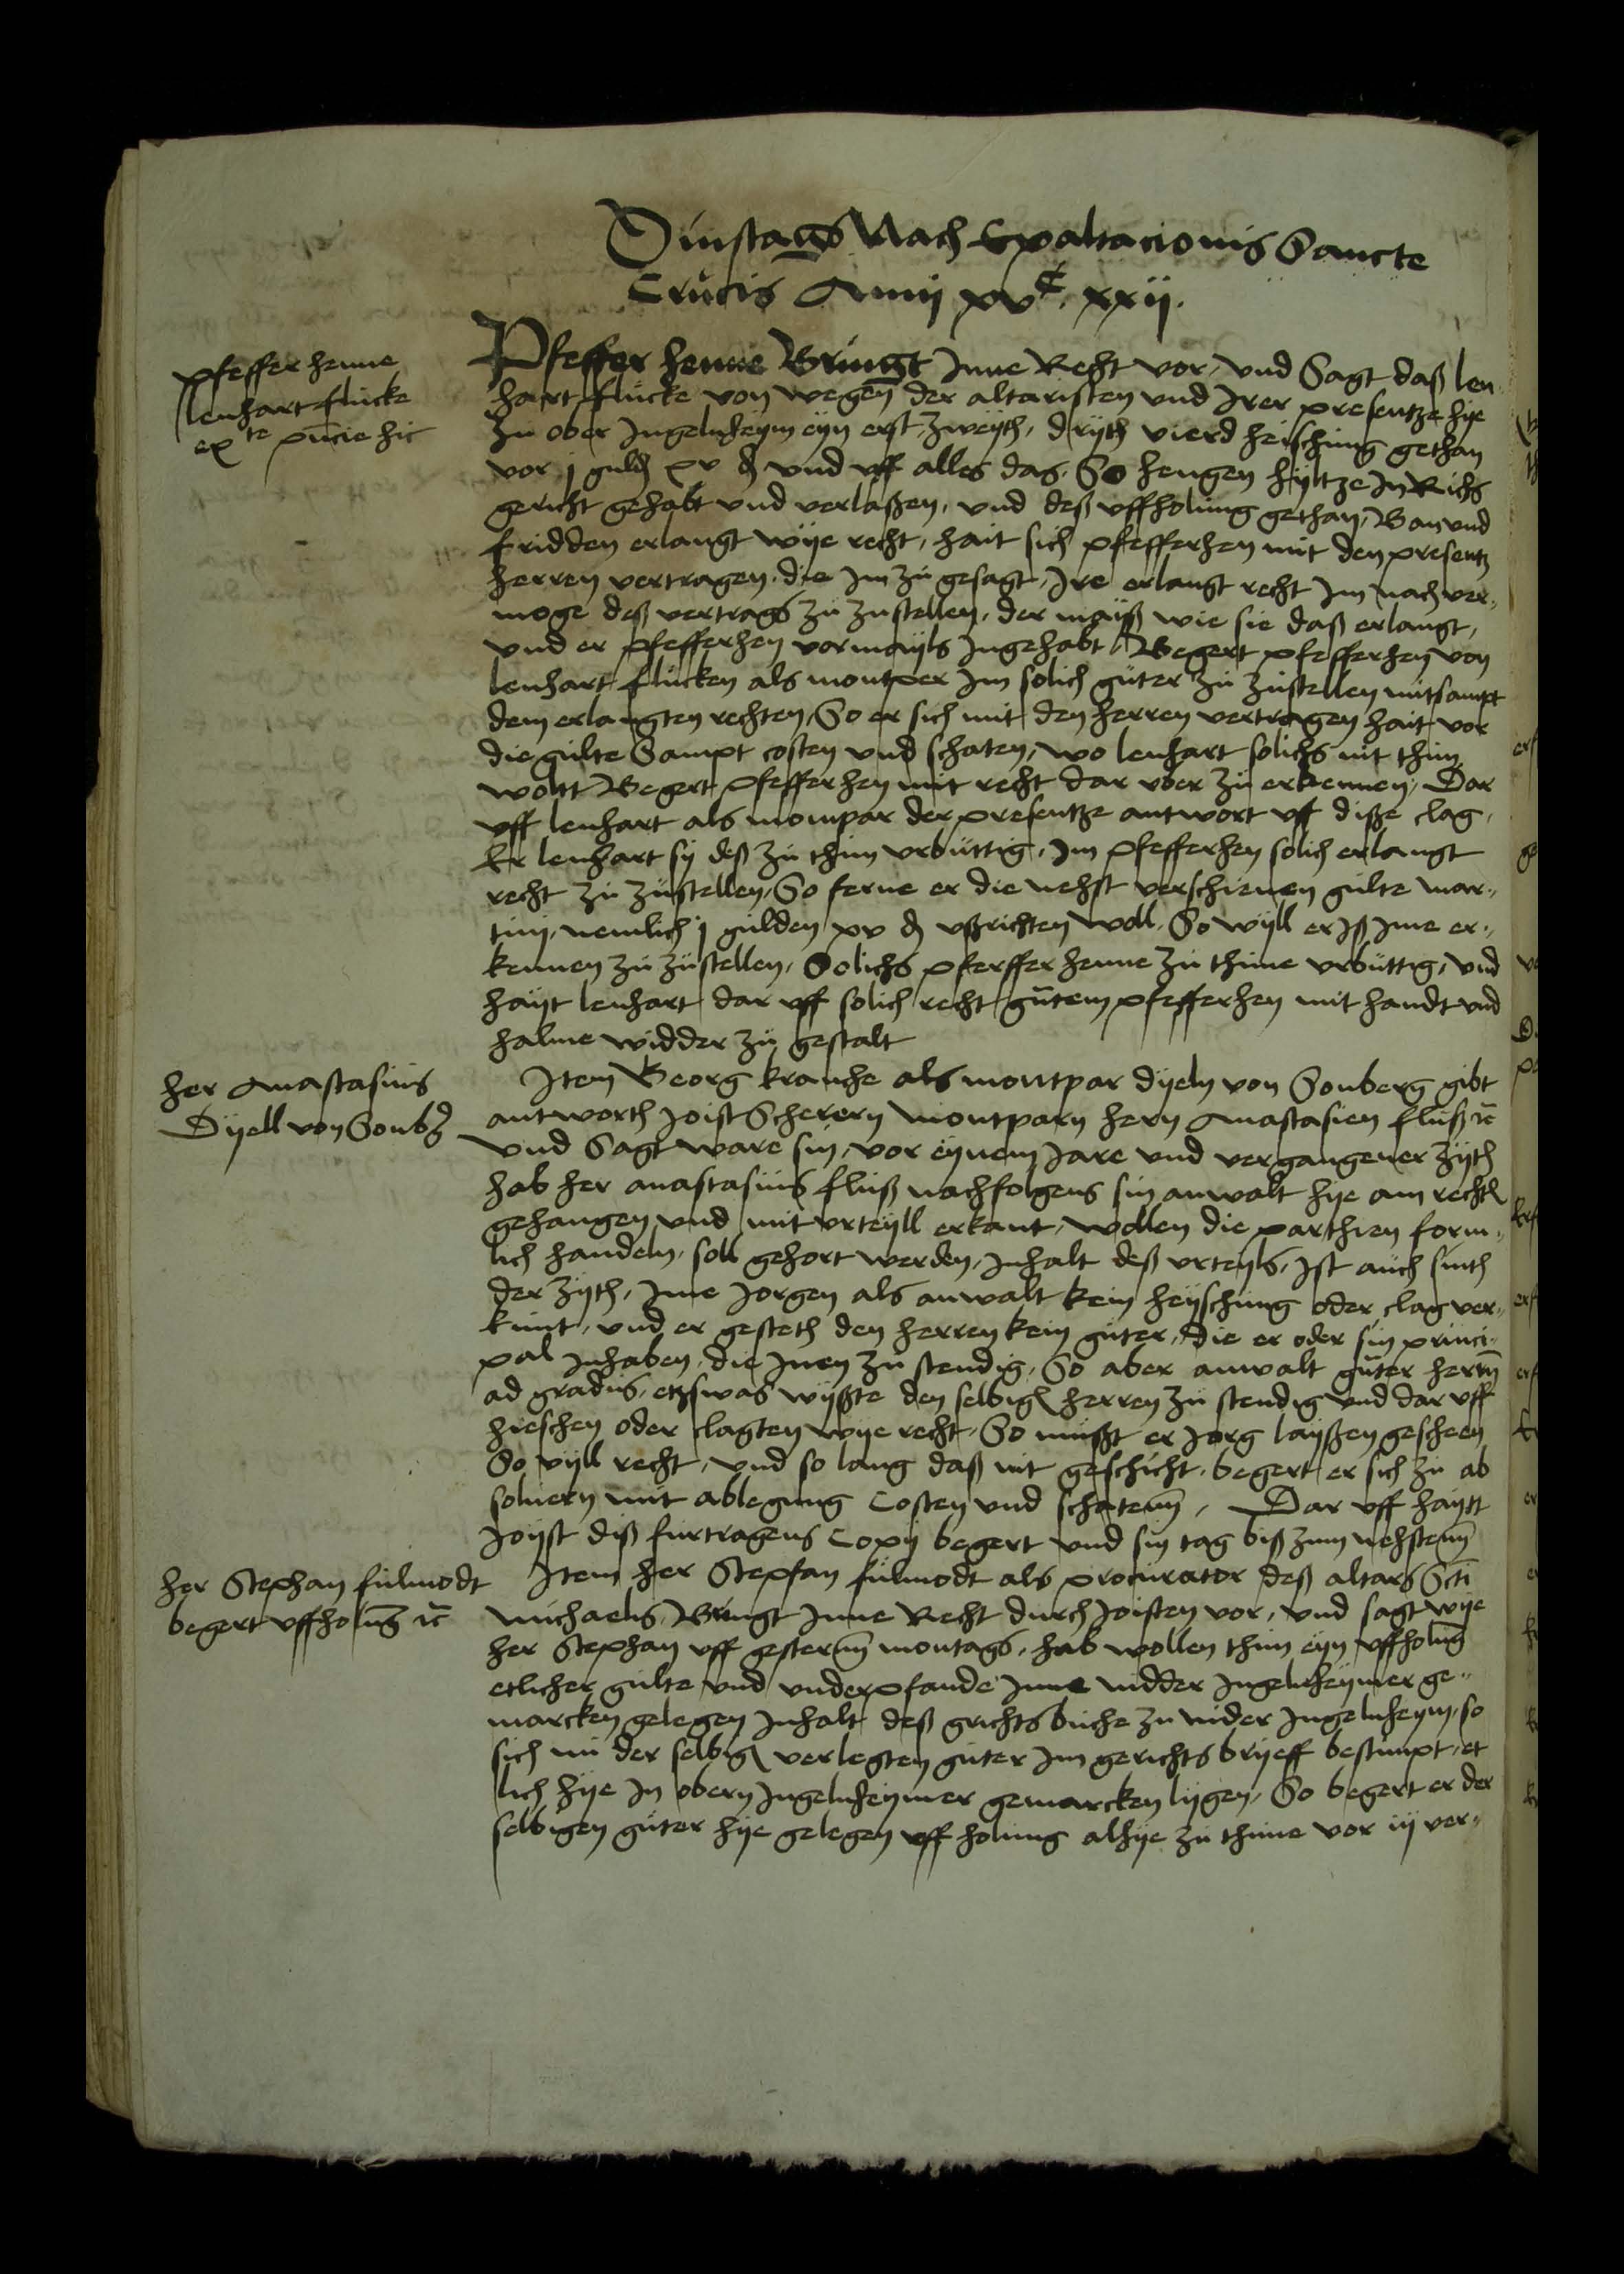 Dinstags Nach Exaltacionis Sancte
Crucis Anni xvᶜ xxij.
pfeffer henne
lenhart flucke
ex te pn̄cie hic
Pfeffer henne Bringt Inne Recht vor, vnd Sagt daß len-
hart flucke von wegen der altaristen vnd Irer presentze hye
zu ober Ingelnheym eyn erst, zweyth, dryth vierd heischung gethan
vor j guld xv ₰ vnd vff alles das. So hengen hyltze In Richs
gericht gehabt vnd verlaßen, vnd deß vffholung gethan, Ban vnd
fridden erlangt wye recht, hait sich pfefferhen mit den presentz
herren vertragen, die Im zu gesagt, Ire erlangt recht Im nach ver-
moge deß vertrags zu zustellen, der mayß wie sie daß erlangt,
vnd er pfefferhen vormayls Ingehabt, Begert pfefferhen von
lenhart flucken als montper Im solich guter zu zustellen mitsampt
dem erlangten rechten, So er sich mit den herren vertragen hait vor
die gulte Sampt costen vnd schaten, wo lenhart solichs nit thun
wolt Begert pfefferhen mit recht dar vber zu erkennen, Dar
vff lenhart als mompar der presentze antwort vff diße clag,
Er lenhart sy deß zu thun vrbuttig, Im pfefferhen solich erlangt
recht zu zustellen, So ferne er die nehst verschienen gulte mar-
tini, nemlich j gulden xv ₰ vßrichten woll. So wyll er Iß Ime er-
kennen zu zustellen, Solichs pferffer henne zu thune vrbuttig, vnd
hayt lenhart dar vff solich recht gutem pfefferhen mit handt vnd
halme widder zu gestalt
her Anastasius
Dyell von Sonbg
Item Georg kranche als montpar dyeln von Sonberg gibt
antworth Joist Scherern montparn hern Anastasien fluß ꝛc
vnd Sagt ware sin, vor eynem Jare vnd vergangener zyth
hab her anastasius fluß nachfolgens sin anwalt hye am rechtn
gehangen vnd mit vrteyll erkant, wollen die parthien form-
lich handeln, soll gehort werden, Inhalt deß vrteyls, Ist auch sinth
der zyth, Ime Jorgen als anwalt kein heyschung oder clag ver-
kunt, vnd er gesteth den herren kein guter, die er oder sin princi-
pal Inhaben, die Inen zu stendig, So aber anwalt guter herrn
ad gradus, etzswas wyßte den selbign herren zu stendig vnd dar vff
hieschen oder clagten wye recht, So mußt er Jorg layßen gescheen
So vyll recht, vnd so lang daß nit geschicht, begert er sich zu ab
soluern mit ablegung Costen vnd schatenn, Dar vff haytt
Joyst diß furtragens Copy begert vnd sin tag biß zum nehstenn
her Stephan fulmodt
begert vffholung ꝛc
Item her Stepfan fulmodt als procurator deß altars Scti
Michaelis, Bringt Inne Recht durch Joisten vor, vnd sagt wye
her Stephan vff gesternn montags, hab wollen thun eyn vffholung
etlicher gulte vnd vnderpfande Inne nidder Ingelnheymer ge-
marcken gelegen Inhalt deß grichts buche zu nider Ingelnheym, so
sich nu der selbign verlegten guter Im gerichts bryeff bestimpt, et
lich hye In obern Ingelnheymer gemarcken lygen, So begert er der
selbigen guter hye gelegen vff holung alhye zu thune vor iij ver-